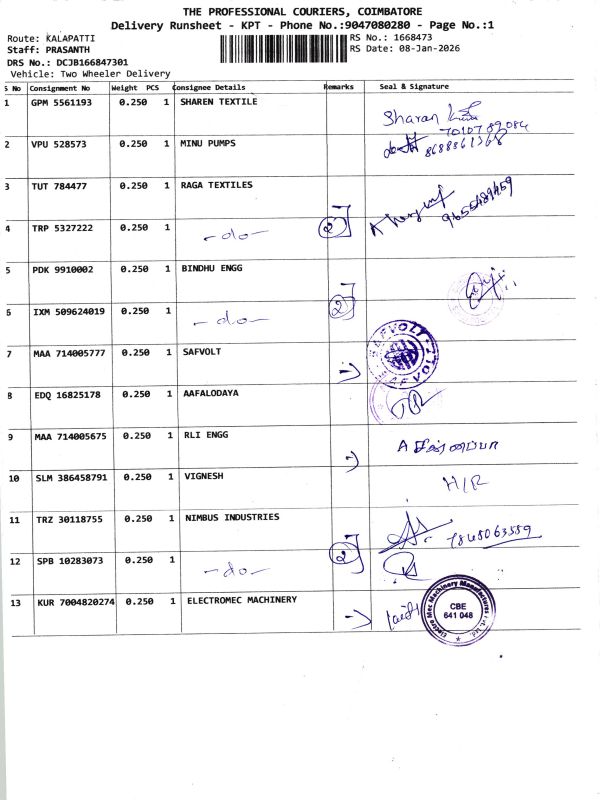 THE PROFESSIONAL COURIERS, COIMBATORE
Delivery Runsheet - KPT - Phone No.:9047080280 - Page No.:1
Route: KALAPATTI
RS No.: 1668473
Staff: PRASANTH
RS Date: 08-Jan-2026
DRS No.: DCJB166847301
Vehicle: Two Wheeler Delivery
S No Consignment No Weight PCS Consignee Details Remarks Seal & Signature
1 GPM 5561193 0.250 1 SHAREN TEXTILE Sharan
7010789084
2 VPU 528573 0.250 1 MINU PUMPS 8688861368
3 TUT 784477 0.250 1 RAGA TEXTILES
9655489459
4 TRP 5327222 0.250 1 -do- 2
5 PDK 9910002 0.250 1 BINDHU ENGG
6 IXM 509624019 0.250 1 -do- 2
7 MAA 714005777 0.250 1 SAFVOLT SAFVOLT
8 EDQ 16825178 0.250 1 AAFALODAYA
9 MAA 714005675 0.250 1 RLI ENGG A சின்னப்பா
10 SLM 386458791 0.250 1 VIGNESH H/R
11 TRZ 30118755 0.250 1 NIMBUS INDUSTRIES 7845063559
12 SPB 10283073 0.250 1 -do- 2
13 KUR 7004820274 0.250 1 ELECTROMEC MACHINERY
Electro Mec Machinery Manufactures Pvt. Ltd.
CBE
641 048